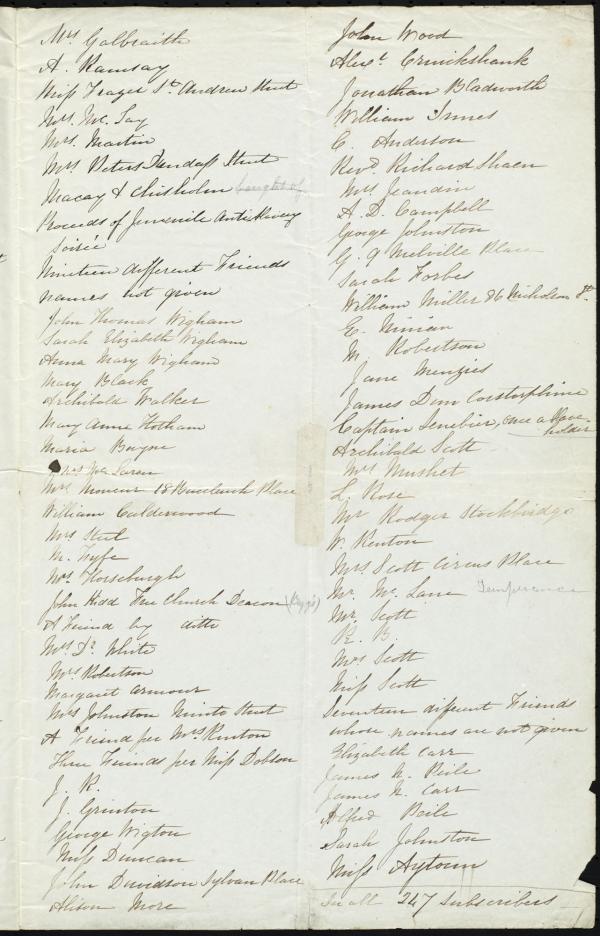 Mrs Galbraith
A. Ramsay
Miss Frazer St. Andrew Street
Mrs Mc. Lay
Mrs. Martin
Mrs Peters Street
Macay & Chisholm
Proceeds of Juvenile Anti Slavery
Soirée
Nineteen different Friends
names not given
John Thomas Wigham
Sarah Elizabeth Wigham
Anna Mary Wigham
Mary Black
Archibald Walker
Mary Anne Hotham
Maria
Mrs Mc Laren
Mrs 18 Buccleuch Place
William Calderwood
Mrs Steel
M. Fyfe
Mrs Horsburgh
John Kidd Free Church Deacon
A Friend by ditto
Mrs Dr. White
Mrs Robertson
Margaret Armour
Mrs Johnston Minto Street
A Friend per Mrs Renton
Three Friends per Miss Dobson
J. R.
J. Grinton
George Wigton
Miss Duncan
John Davidson Sylvan Place
Alison More
John Wood
Alexr. Cruikshank
Jonathan Bladworth
William Innes
C. Anderson
Revd. Richard Shaen
Mrs Jeandin
A. D. Campbell
George Johnston
G. 9 Melville Place
Sarah Forbes
William Miller 86 Nicholson St.
E. Ninian
M. Robertson
Jane Menzies
James Dun Corstorphine
Captain Senebier, once a Slave-
holder
Archibald Scott
Mrs Mushet
L. Rose
Mr Rodger Stockbridge
W. Renton
Mrs Scott Circus Place
Mr. Mc. Lane Temperance
Mr. Scott
R. B.
Mrs Scott
Miss Scott
Seventeen different Friends
whose names are not given
Elizabeth Carr
James N. Peile
James N. Carr
Alfred Peile
Sarah Johnston
Miss Aytoun
In all 247 Subscribers